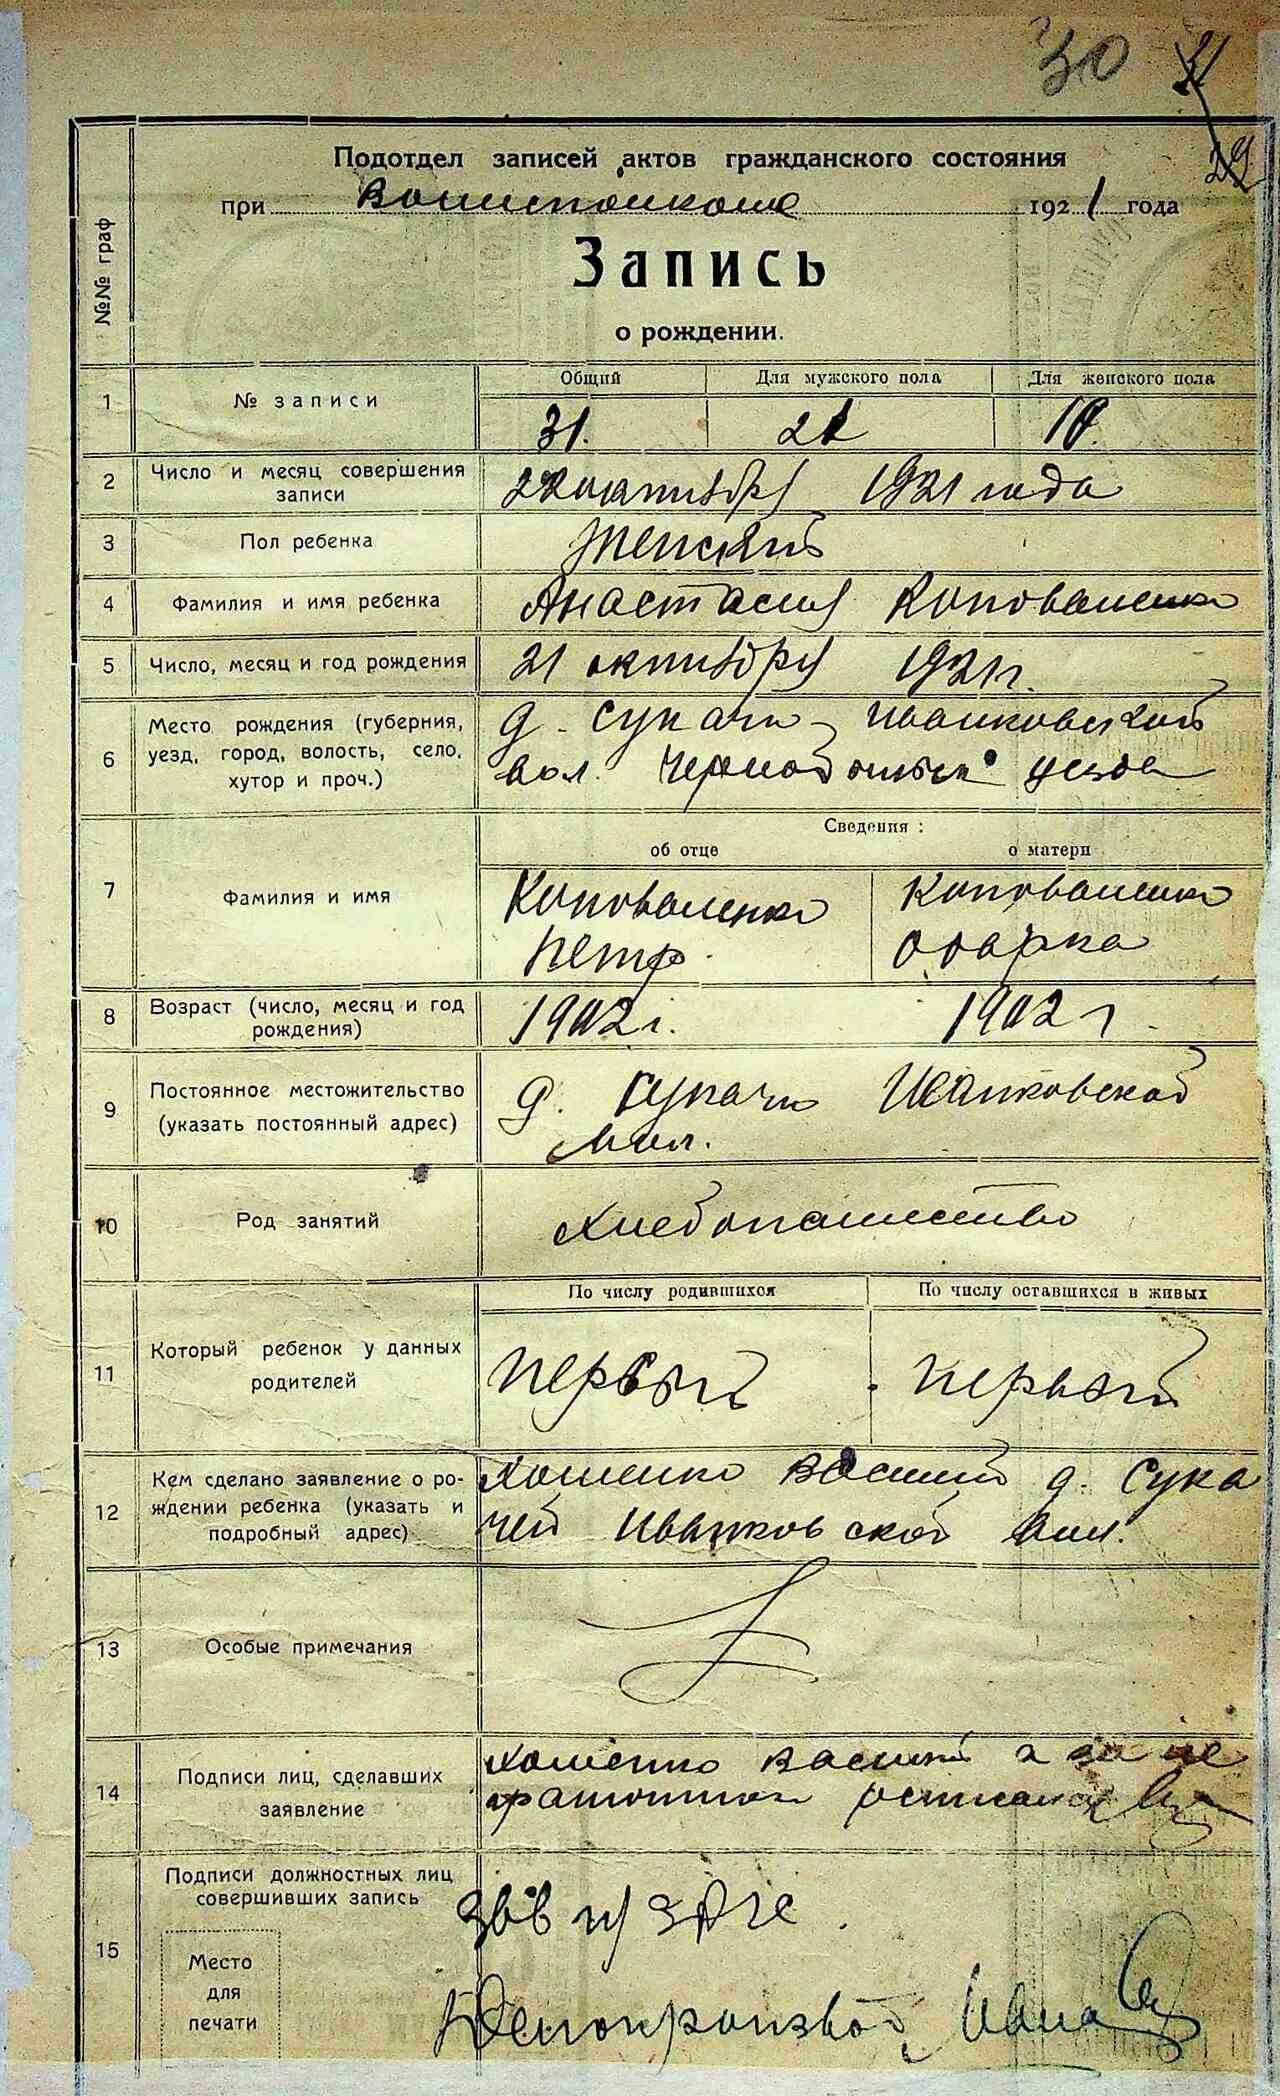 30 31
29
Подотдел записей актов гражданского состояния
при Волисполкоме 1921 года
Запись
о рождении.
№№ граф
Общий Для мужского пола Для женского пола
1 № записи 31. 21 10.
2 Число и месяц совершения
записи
22 октября 1921 года
3 Пол ребенка Женский
4 Фамилия и имя ребенка Анастасия Коноваленко
5 Число, месяц и год рождения 21 октября 1921 г.
6 Место рождения (губерния,
уезд, город, волость, село,
хутор и проч.)
д. Сукачи Иванковской
вол. Чернобыльск уезда
Сведения:
об отце о матери
7 Фамилия и имя
Коноваленко Коноваленко
Петр. Одарка
8 Возраст (число, месяц и год
рождения)
1902 г. 1902 г.
9 Постоянное местожительство
(указать постоянный адрес)
д. Сукачи Иванковской
вол.
10 Род занятий Хлебопашество
По числу родившихся По числу оставшихся в живых
11 Который ребенок у данных
родителей
первый первый
12 Кем сделано заявление о ро-
ждении ребенка (указать и
подробный адрес)
Хоменко Василий д. Сука
чей Иванковской вол.
13 Особые примечания
14 Подписи лиц, сделавших
заявление
Хоменко Василий а за не
грамотного
15 Подписи должностных лиц
совершивших запись
Место
для
печати
Делопроизвод